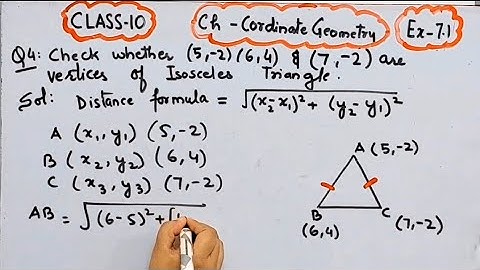 CLASS-10
Ch - Cordinate Geometry
Ex-7.1
Q4: Check whether (5,-2) (6,4) & (7,-2) are
vertices of Isosceles Triangle.
Sol: Distance formula = √(x₂-x₁)² + (y₂-y₁)²
A (x₁, y₁) (5,-2)
B (x₂, y₂) (6,4)
C (x₃, y₃) (7,-2)
AB = √(6-5)² + [
A (5,-2)
B
(6,4)
C
(7,-2)